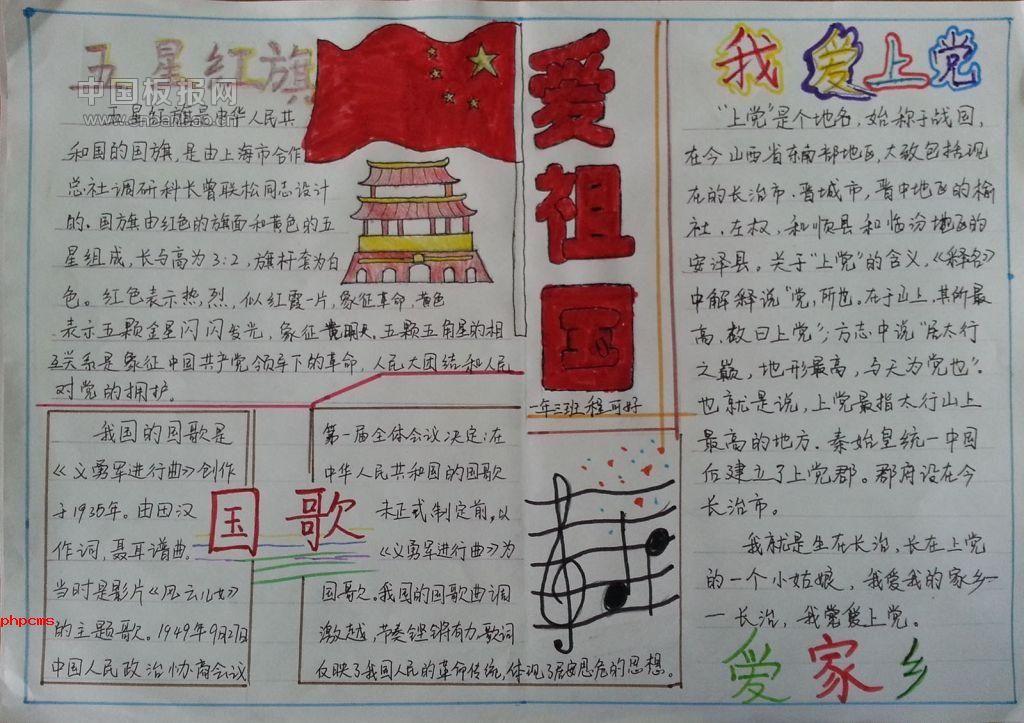 五星红旗
中国板报网
五星红旗是中华人民共
和国的国旗，是由上海市合作
总社调研科长曾联松同志设计
的。国旗由红色的旗面和黄色的五
星组成，长与高为3:2，旗杆套为白
色。红色表示热，烈，似红霞一片，象征革命，黄色
表示五颗金星闪闪发光，象征光明。五颗五角星的相
互关系是象征中国共产党领导下的革命，人民大团结和人民
对党的拥护。
爱祖国
一年三班 程可好
我国的国歌是
《义勇军进行曲》创作
于1935年。由田汉
作词，聂耳谱曲。
当时是影片《风云儿女》
的主题歌。1949年9月27日
中国人民政治协商会议
国歌
第一届全体会议决定：在
中华人民共和国的国歌
未正式制定前，以
《义勇军进行曲》为
国歌。我国的国歌曲调
激越，节奏铿锵有力，歌词
反映了我国人民的革命传统，体现了居安思危的思想。
我爱上党
“上党”是个地名，始称于战国，
在今山西省东南部地区，大致包括现
在的长治市、晋城市，晋中地区的榆
社、左权，和顺县和临汾地区的
安泽县。关于“上党”的含义，《释名》
中解释说“党，所也。在于山上，其所最
高，故曰上党”；方志中说“居太行
之巅，地形最高，与天为党也”。
也就是说，上党最指太行山上
最高的地方。秦始皇统一中国
后建立了上党郡。郡府设在今
长治市。
我就是生在长治，长在上党
的一个小姑娘，我爱我的家乡—
—长治，我爱上党。
爱家乡
phpcms